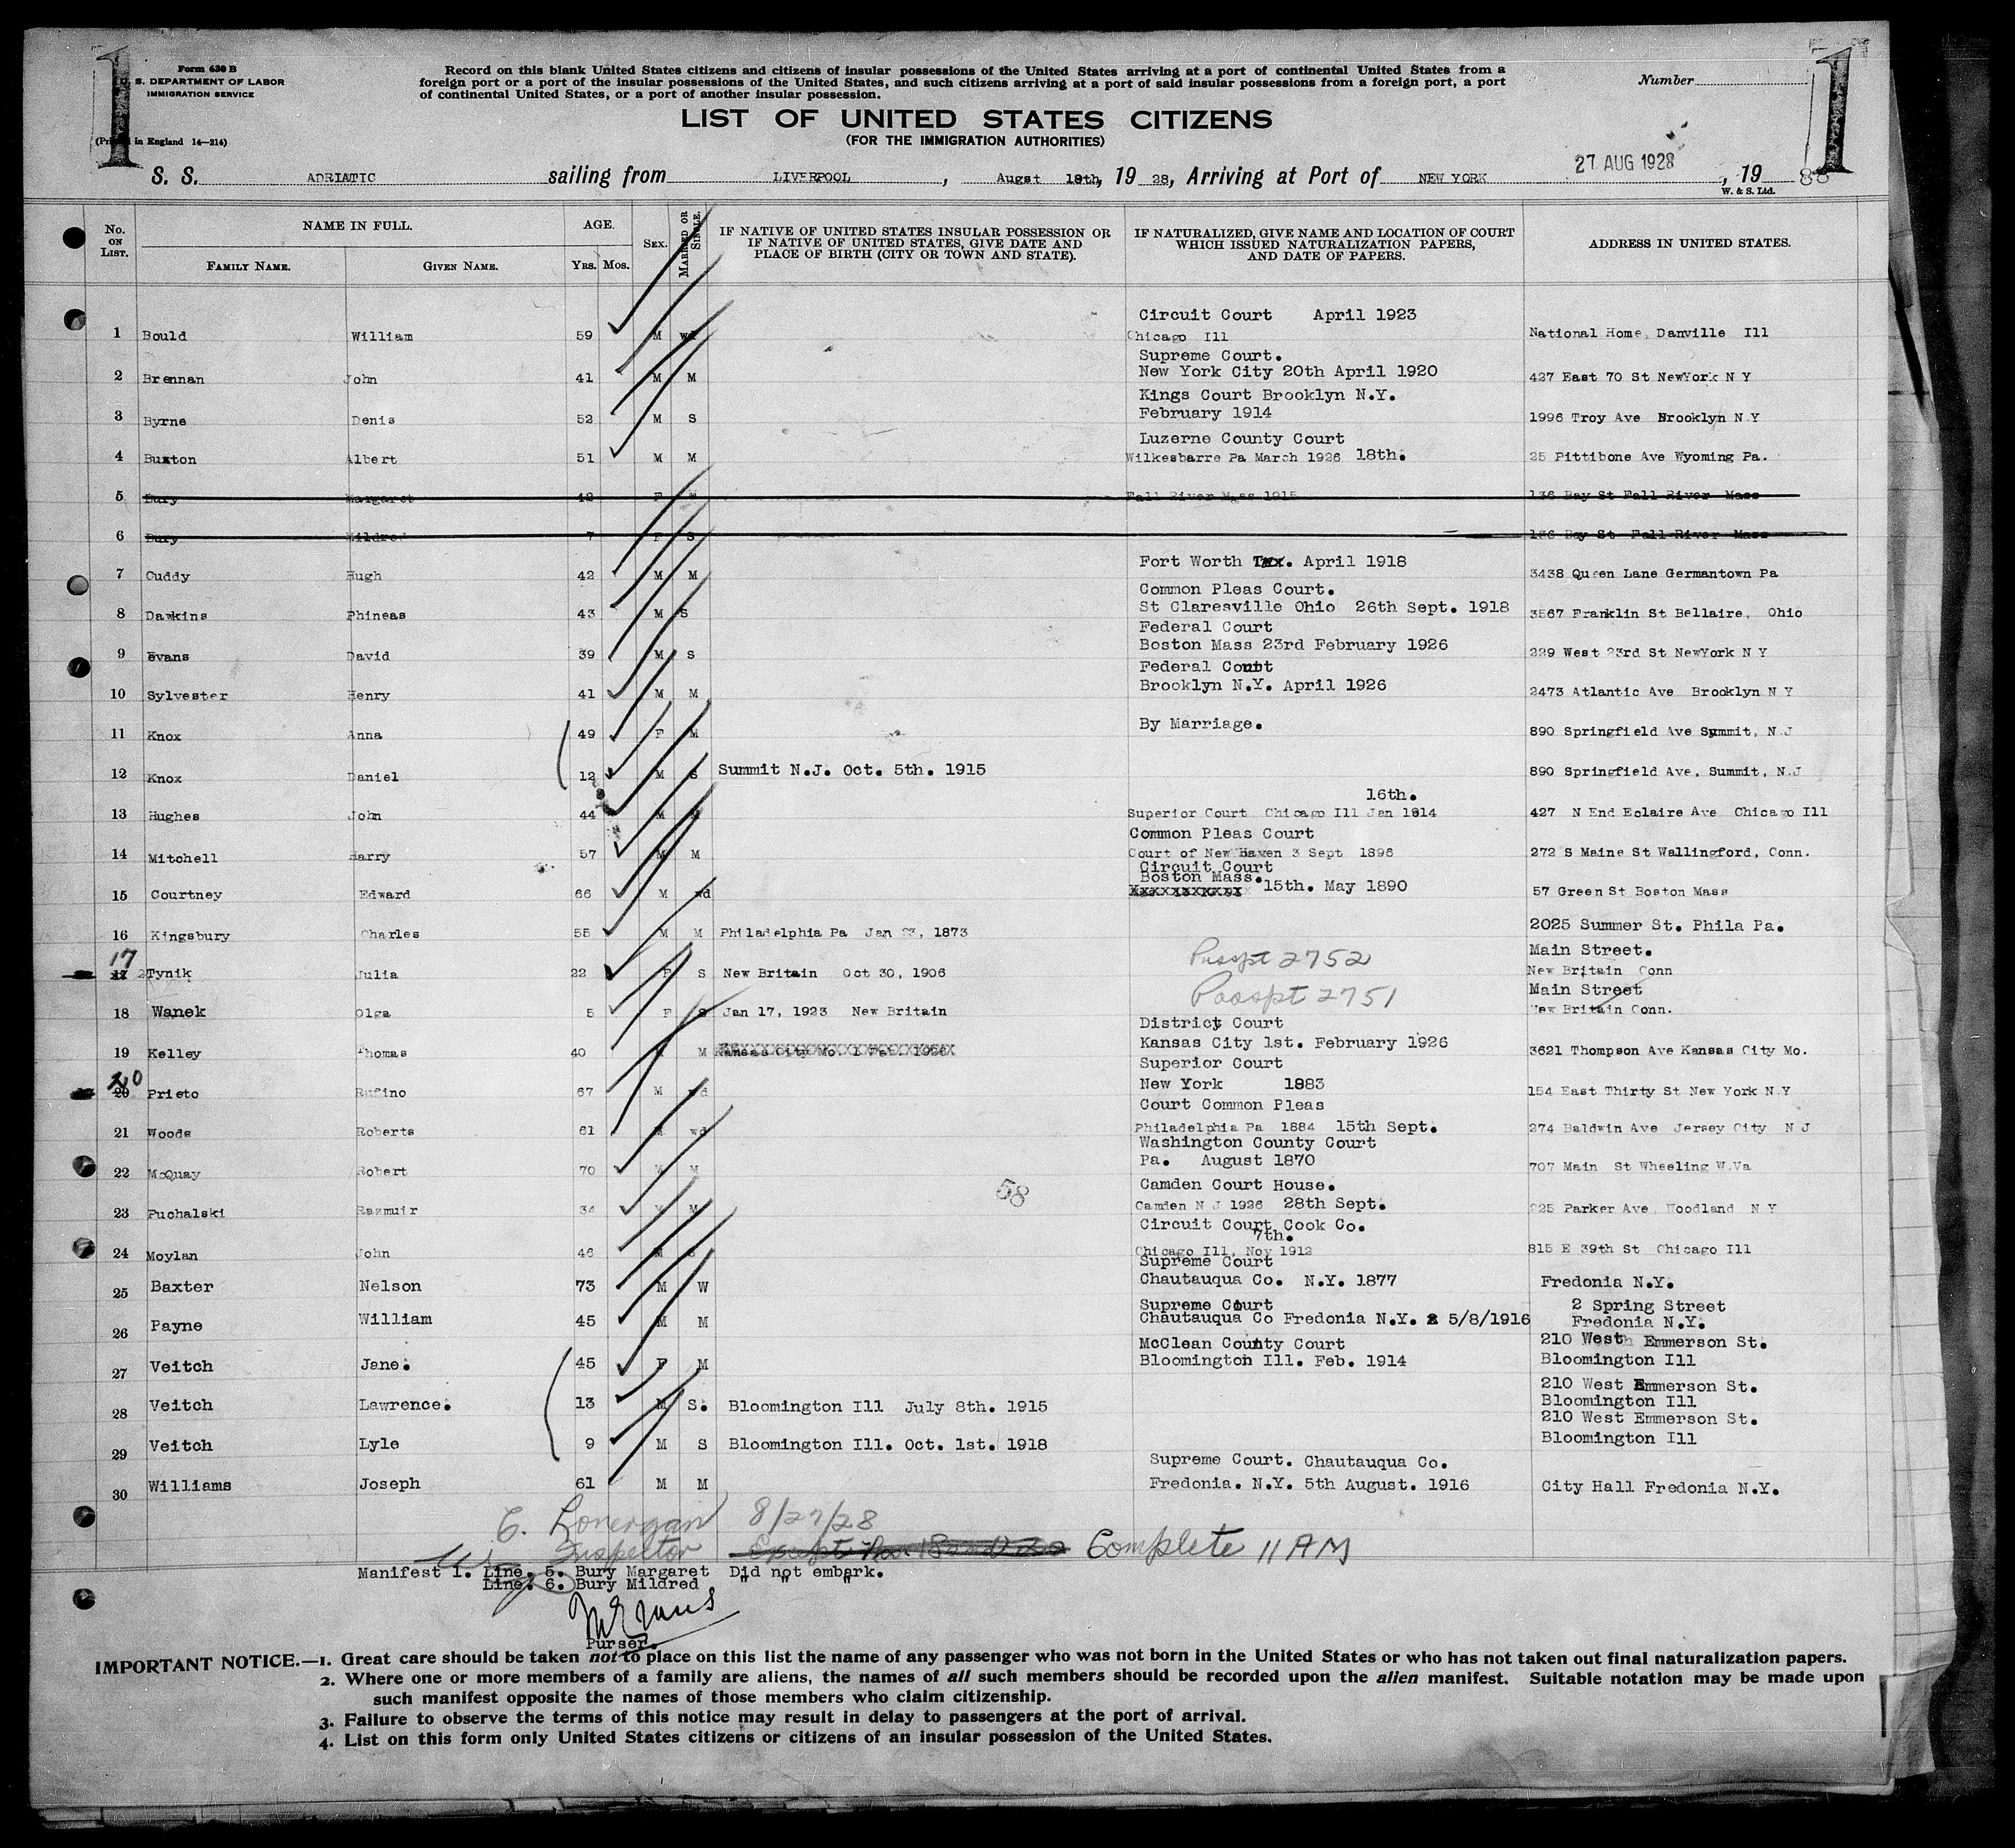 1
Form 630 B
U. S. DEPARTMENT OF LABOR
IMMIGRATION SERVICE
(Printed in England 14—214)
Record on this blank United States citizens and citizens of insular possessions of the United States arriving at a port of continental United States from a
foreign port or a port of the insular possessions of the United States, and such citizens arriving at a port of said insular possessions from a foreign port, a port
of continental United States, or a port of another insular possession.
Number
1
LIST OF UNITED STATES CITIZENS
(FOR THE IMMIGRATION AUTHORITIES)
S. S. ADRIATIC sailing from LIVERPOOL, Augst 18th, 19 28, Arriving at Port of NEW YORK 27 AUG 1928, 19
W. & S. Ltd.
No. ON LIST. NAME IN FULL. FAMILY NAME. GIVEN NAME. AGE. YRS. MOS. SEX. MARRIED OR SINGLE.
IF NATIVE OF UNITED STATES INSULAR POSSESSION OR
IF NATIVE OF UNITED STATES, GIVE DATE AND
PLACE OF BIRTH (CITY OR TOWN AND STATE).
IF NATURALIZED, GIVE NAME AND LOCATION OF COURT
WHICH ISSUED NATURALIZATION PAPERS,
AND DATE OF PAPERS.
ADDRESS IN UNITED STATES.
Circuit Court April 1923
1 Bould William 59 M wd Chicago Ill National Home, Danville Ill
Supreme Court.
2 Brennan John 41 M M New York City 20th April 1920 427 East 70 St NewYork N Y
Kings Court Brooklyn N.Y.
3 Byrne Denis 52 M S February 1914 1996 Troy Ave Brooklyn N.Y
Luzerne County Court
4 Buxton Albert 51 M M Wilkesbarre Pa March 1926 18th. 25 Pittibone Ave Wyoming Pa.
5 Bury Margaret F M Fall River Mass 1915 136 Bay St Fall River Mass
6 Bury Mildred 7 F S 136 Bay St Fall River Mass
7 Cuddy Hugh 42 M M Fort Worth Tex. April 1918 3438 Queen Lane Germantown Pa
Common Pleas Court.
8 Dawkins Phineas 43 M S St Claresville Ohio 26th Sept. 1918 3567 Franklin St Bellaire, Ohio
Federal Court
9 Evans David 39 M S Boston Mass 23rd February 1926 229 West 23rd St NewYork N Y
Federal Court
10 Sylvester Henry 41 M M Brooklyn N.Y. April 1926 2473 Atlantic Ave Brooklyn N Y
11 Knox Anna 49 F M By Marriage. 890 Springfield Ave Summit, N.J
12 Knox Daniel 12 M S Summit N.J. Oct. 5th. 1915 890 Springfield Ave, Summit, N.J
16th.
13 Hughes John 44 M M Superior Court Chicago Ill Jan 1914 427 N End Eclaire Ave Chicago Ill
Common Pleas Court
14 Mitchell Harry 57 M M Court of New Haven 3 Sept 1896 272 S Maine St Wallingford, Conn.
Circuit Court
Boston Mass.
15 Courtney Edward 66 M wd xxxxxxxxxxxx 15th. May 1890 57 Green St Boston Mass
16 Kingsbury Charles 55 M M Philadelphia Pa Jan 23, 1873 2025 Summer St. Phila Pa.
Main Street.
17 Tynik Julia 22 F S New Britain Oct 30, 1906 Passpt 2752 New Britain Conn
Main Street
18 Wanek Olga 5 F S Jan 17, 1923 New Britain Passpt 2751 New Britain Conn.
District Court
19 Kelley Thomas 40 M M Kansas City Mo. 1 Feb. 1926 Kansas City 1st. February 1926 3621 Thompson Ave Kansas City Mo.
Superior Court
20 Prieto Rufino 67 M wd New York 1883 154 East Thirty St New York N.Y
Court Common Pleas
21 Woods Roberts 61 M wd Philadelphia Pa 1884 15th Sept. 274 Baldwin Ave Jersey City N J
Washington County Court
22 McQuay Robert 70 M M Pa. August 1870 707 Main St Wheeling W.Va
Camden Court House.
58
23 Puchalski Razmuir 34 M M Camden N J 1926 28th Sept. 225 Parker Ave, Woodland N Y
Circuit Court Cook Co.
7th.
24 Moylan John 46 M S Chicago Ill, Nov 1912 815 E 39th St Chicago Ill
Supreme Court
25 Baxter Nelson 73 M W Chautauqua Co. N.Y. 1877 Fredonia N.Y.
Supreme Court 2 Spring Street
26 Payne William 45 M M Chautauqua Co Fredonia N.Y. 5/8/1916 Fredonia N.Y.
McClean County Court 210 West Emmerson St.
27 Veitch Jane. 45 F M Bloomington Ill. Feb. 1914 Bloomington Ill
210 West Emmerson St.
28 Veitch Lawrence. 13 M S. Bloomington Ill July 8th. 1915 Bloomington Ill
210 West Emmerson St.
29 Veitch Lyle 9 M S Bloomington Ill. Oct. 1st. 1918 Bloomington Ill
Supreme Court. Chautauqua Co.
30 Williams Joseph 61 M M Fredonia. N.Y. 5th August. 1916 City Hall Fredonia N.Y.
E. Lonergan 8/27/28
Inspector Complete 11 AM
Manifest 1. Line. 5. Bury Margaret Did not embark.
Line. 6. Bury Mildred " " "
Purser.
IMPORTANT NOTICE.—1. Great care should be taken not to place on this list the name of any passenger who was not born in the United States or who has not taken out final naturalization papers.
2. Where one or more members of a family are aliens, the names of all such members should be recorded upon the alien manifest. Suitable notation may be made upon
such manifest opposite the names of those members who claim citizenship.
3. Failure to observe the terms of this notice may result in delay to passengers at the port of arrival.
4. List on this form only United States citizens or citizens of an insular possession of the United States.